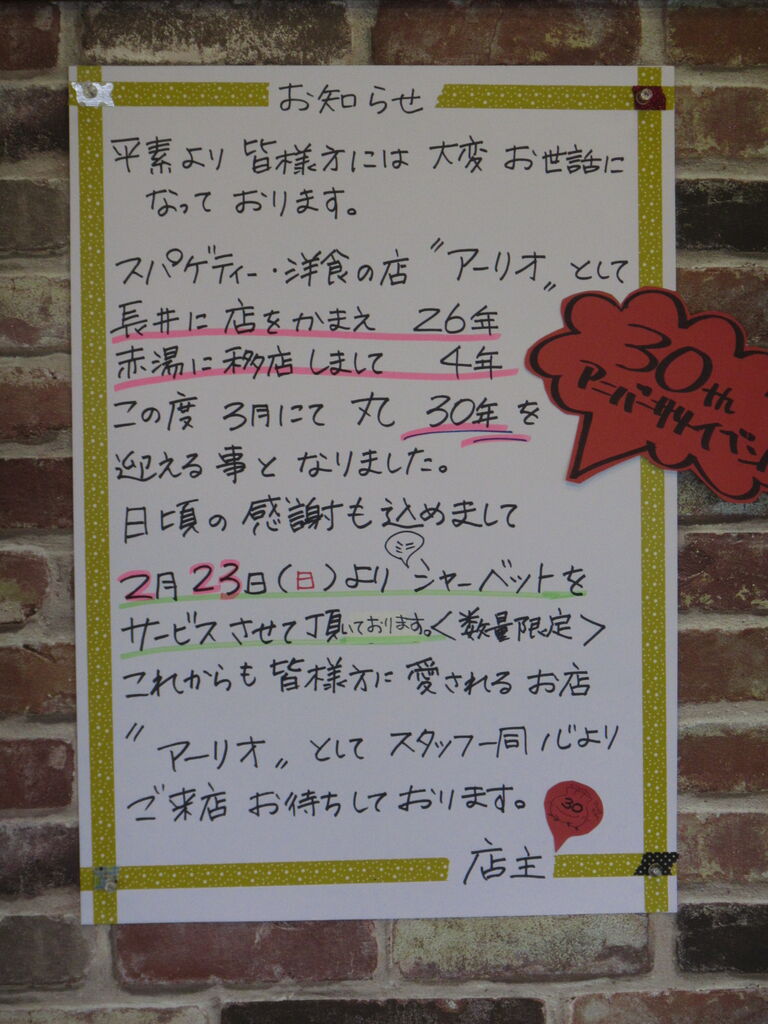 お知らせ
平素より 皆様方には 大変 お世話に
なって おります。
スパゲティー・洋食の店 〝アーリオ〟として
長井に 店をかまえ 26年
赤湯に移店しまして 4年
この度 3月にて 丸 30年を
迎える事と なりました。
日頃の 感謝も込めまして
ミニ
2月23日(日)より シャーベットを
サービスさせて頂いております。<数量限定>
これからも 皆様方に 愛される お店
〝アーリオ〟として スタッフ一同 心より
ご来店 お待ちしております。
店主
30th
30